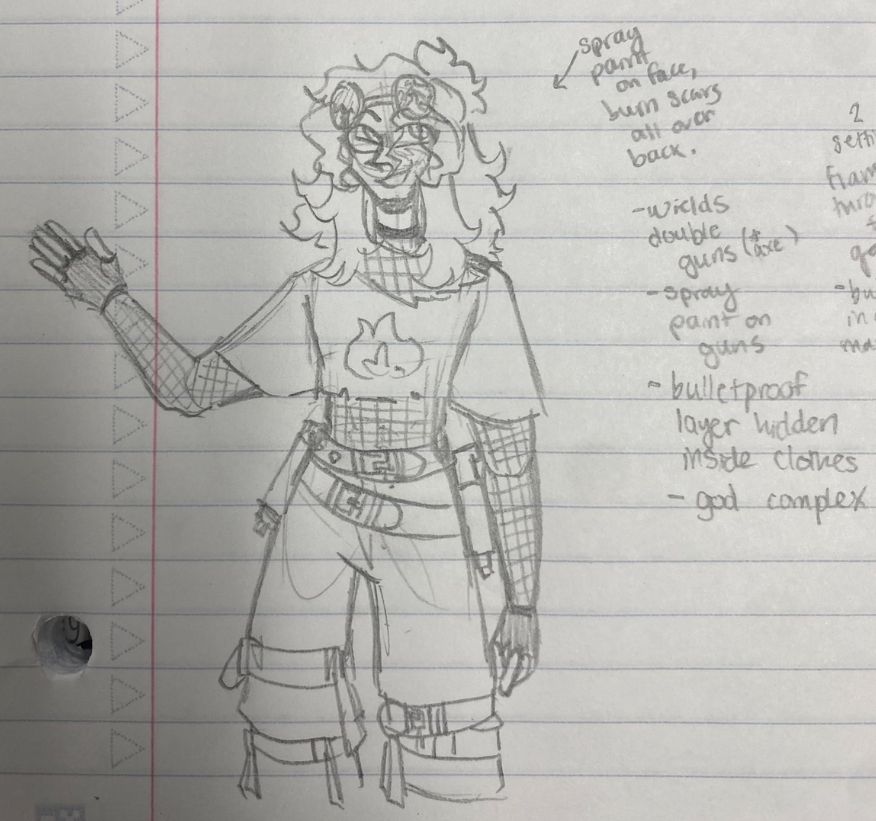 spray
paint
on face,
burn scars
all over
back.
- wields
double
guns (+ axe)
- spray
paint on
guns
- bulletproof
layer hidden
inside clothes
- god complex
2